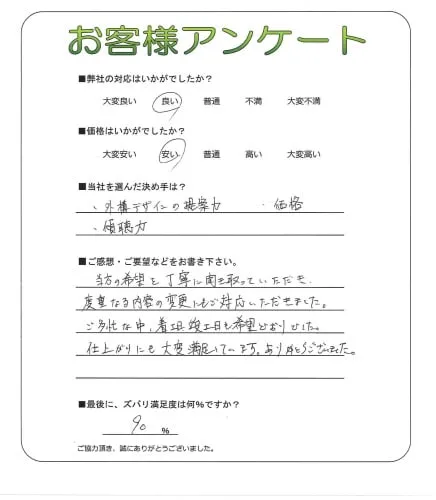 お客様アンケート
■弊社の対応はいかがでしたか?
大変良い 良い 普通 不満 大変不満
■価格はいかがでしたか?
大変安い 安い 普通 高い 大変高い
■当社を選んだ決め手は?
・外構デザインの提案力 ・価格
・傾聴力
■ご感想・ご要望などをお書き下さい。
当方の希望を丁寧に聞き取っていただき、
度重なる内容の変更にもご対応いただきました。
ご多忙な中、着工日、竣工日も希望どおりでした。
仕上がりにも大変満足しています。ありがとうございました。
■最後に、ズバリ満足度は何%ですか?
90 %
ご協力頂き、誠にありがとうございました。